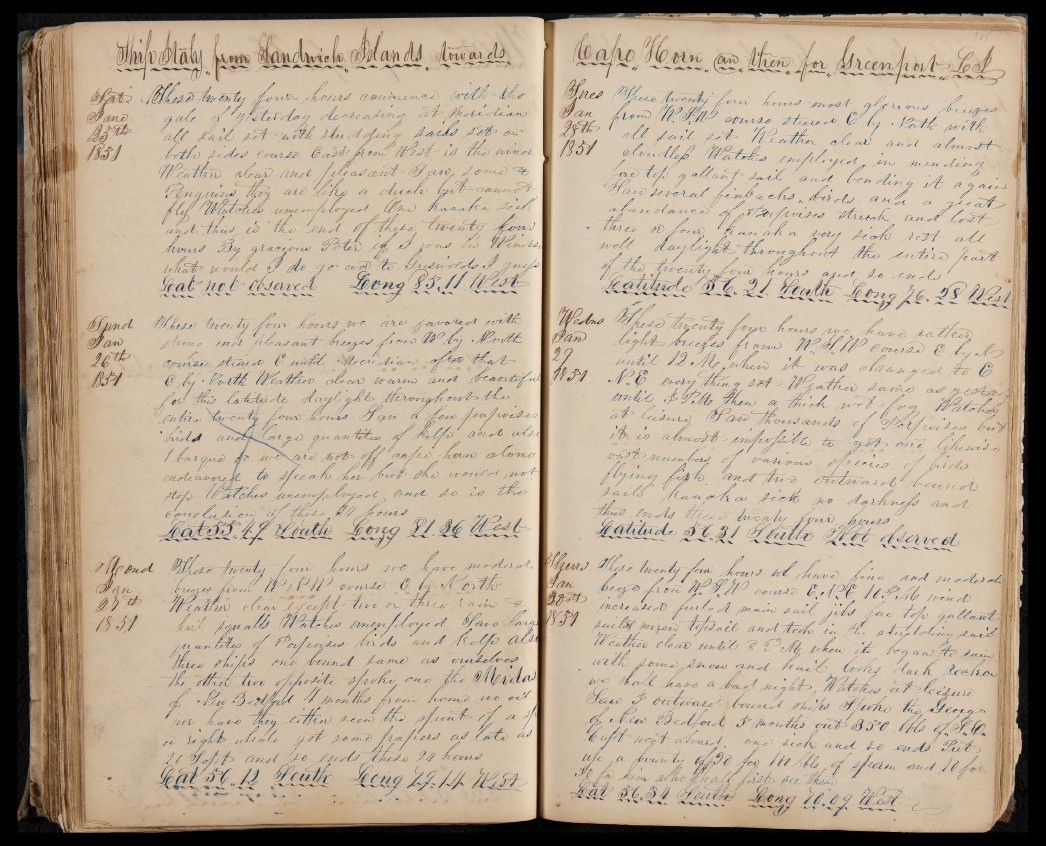 Ship Italy from Sandwich Islands towards
Sat
Jan
25th
1851
These twenty four hours commence with the
gale of yesterday decreasing at Meridian
all sail set with studding sails set on
both sides course East from West is the wind
Weather clear and pleasant Saw some
Penguins they are like a duck but cannot
fly Watches unemployed One kanaka sick
and thus is the end of these twenty four
hours By gracious Peter if I was in
what would I do go over to Griswolds I guess
Lat not observed Long 83,11 West
Sund
Jan
26th
1851
These twenty four hours we are favored with
strong and pleasant breezes from W by North
course steered E until Meridian after that
E by North Weather clear warm and beautiful
for this latitude daylight throughout the
entire twenty four hours Saw a few porpoises
birds and large quantities of kelp and also
1 barque we are not off cape horn alone
endeavored to speak her but she would not
stop Watches unemployed and so is the
conclusion of these 24 hours
Lat 55.47 South Long 81.26 West
Mond
Jan
27th
1851
These twenty four hours we have moderate
breezes from W S W course E by North
Weather clear except two or three rain &
hail squalls Watches unemployed Saw large
quantities of Porpoises birds and kelp also
three ships one bound same as ourselves
the other two opposite spoke one the Merida
of New Bedford 4 months from home no oil
nor have they either seen the spout of a
or right whale got some papers as late as
20 Sept and so ends these 24 hours
Lat 56.12 South Long 79.14 West
Cape Horn an then for Greenport L I
Tues
Jan
28th
1851
These twenty four hours most glorious breezes
from W S W course steered E by North with
all sail set Weather clear and almost
cloudless Watches employed in mending
fore top gallant sail and bending it again
Saw several finbacks, birds and a great
abundance of Porpoises struck and lost
three or four, kanaka very sick rest all
well daylight throughout the entire part
of the twenty four hours and so ends
Latitude 56.21 South Long 76.28 West
Wedns
Jan
29
1851
These twenty four hours we have rather
light breezes from W S W course E by N
until 12 M when it was changed to E
N.E every thing set Weather same as yester
until 5 PM then a thick wet fog Watches
at leisure Saw thousands of Porpoises but
it is almost impossible to get one likewise
vast numbers of various species of birds
flying fish, and two outward bound
sails kanaka sick no darkness and
thus ends these twenty four hours
Latitude 56.31 South Not observed
Thurs
Jan
30th
1851
These twenty four hours we have fine and moderate
breeze from W S W course E.N.E 10 P.M wind
increased furled main sail jibs fore top gallant
sails mizen topsail and took in the studding sail
Weather clear until 8 PM when it began to rain
with some snow and hail looks dark reckon
we shall have a bad night, Watches at leisure
Saw 3 outward bound ships Spoke the George
of New Bedford 5 months out 350 bbls of S.O.
Capt went aboard. one sick and so ends Put
up a bounty of 20 for 100 bbls of sperm and 10 for
him who shall first see them
Lat 56.34 South Long 70.09 West